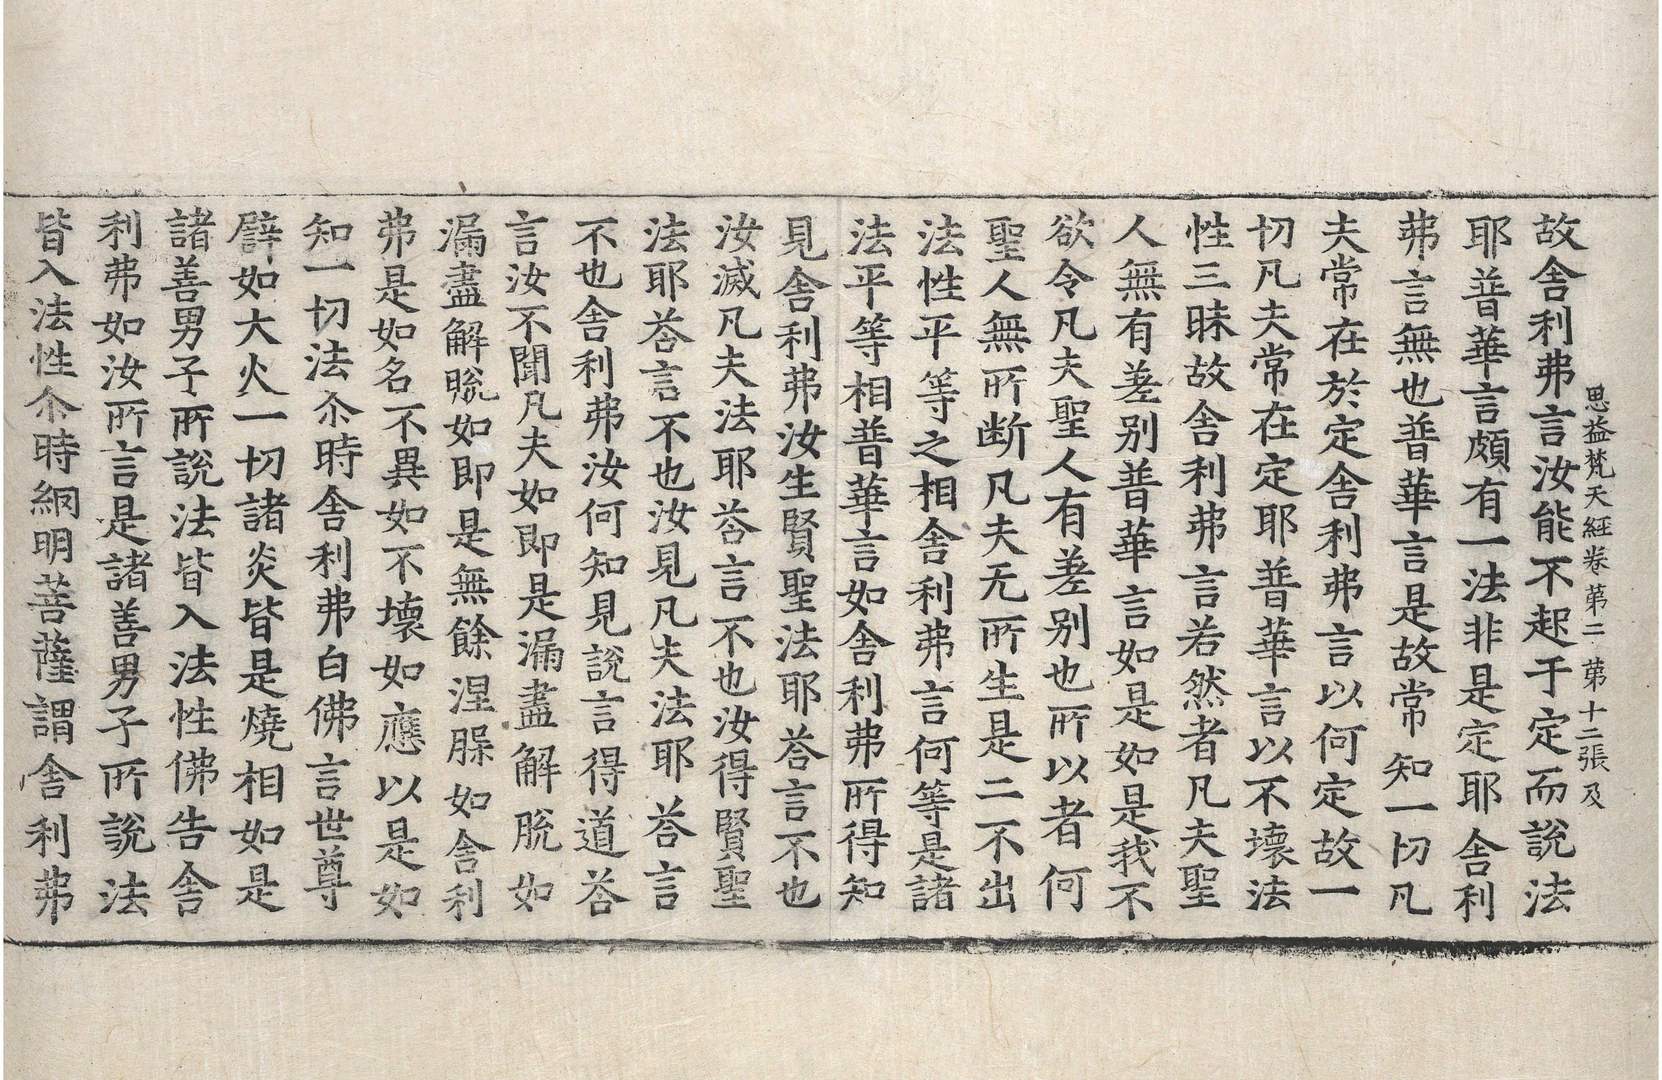 思益梵天經卷第二 第十二張 及
故舍利弗言汝能不起于定而說法
耶普華言頗有一法非是定耶舍利
弗言無也普華言是故常知一切凡
夫常在於定舍利弗言以何定故一
切凡夫常在定耶普華言以不壞法
性三昧故舍利弗言若然者凡夫聖
人無有差别普華言如是如是我不
欲令凡夫聖人有差别也所以者何
聖人無所断凡夫无所生是二不出
法性平等之相舍利弗言何等是諸
法平等相普華言如舍利弗所得知
見舍利弗汝生賢聖法耶荅言不也
汝滅凡夫法耶荅言不也汝得賢聖
法耶荅言不也汝見凡夫法耶荅言
不也舍利弗汝何知見說言得道荅
言汝不聞凡夫如即是漏盡解脫如
漏盡解脫如即是無餘涅槃如舍利
弗是如名不異如不壞如應以是如
知一切法尒時舍利弗白佛言世尊
譬如大火一切諸炎皆是燒相如是
諸善男子所說法皆入法性佛告舍
利弗如汝所言是諸善男子所說法
皆入法性尒時網明菩薩謂舍利弗